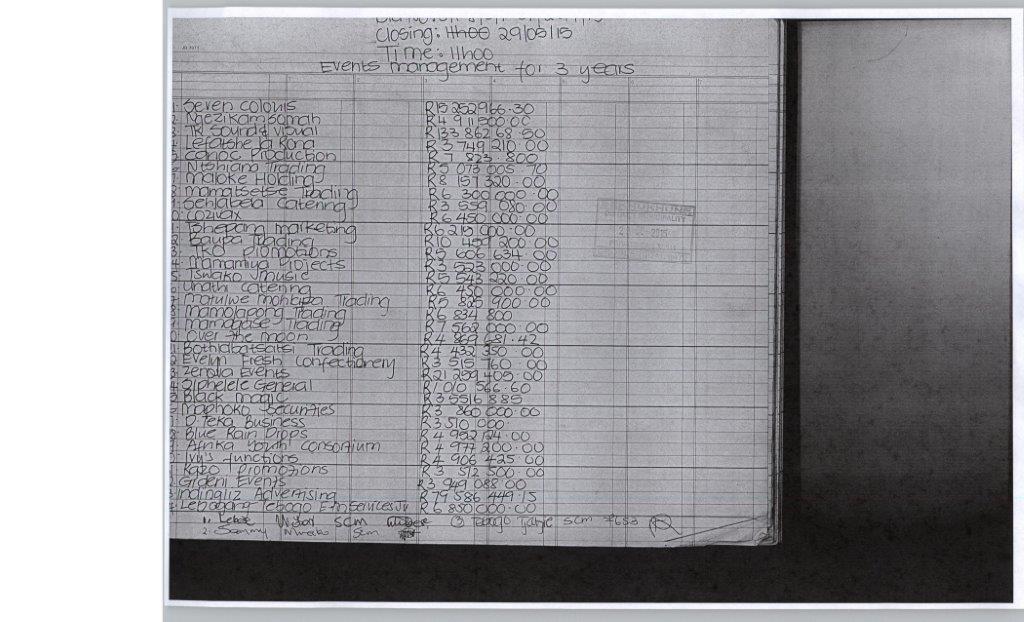 Closing: 11h00 29/05/15
Time: 11h00
Events management for 3 years
1. Seven colours R15 252966.30
R4 911500.00
3. TK Sound & visual R133 862 68.50
4. Lefatshe la Rona R3 749 210.00
Production R7 823.800
6. Ntshiana Trading R5 073 005.70
7. Maloke Holding R8 157 320.00
8. mamatsetse Trading R6 300 000.00
9. Sehlabela Catering R3 559 080.00
R6 450 000.00
1. Tshepang marketing R6 215 000.00
2. Baupa Trading R10 459 200.00
3. TKO Promotions R5 606 634.00
4. Mamamiya Projects R3 523 000.00
5. Tswako music R5 543 220.00
Unathi catering R6 450 000.00
7. Matulwe Mohlapa Trading R5 825 900.00
8. Mamolapong Trading R6 834 800
9. Mamogase Trading R7 562 000.00
0. Over the moon R4 869 681.42
1. Bothlabatsatsi Trading R4 432 350 00
2. Evelyn Fresh Confectionery R3 515 760.00
3. Zenzia Events R21 259 405.00
4. Siphelele General R1 010 566.60
5. Black magic R3 5516 885
Maphoko Securities R3 860 000.00
D Teka Business R3 510 000.
Blue Rain Drops R4 952 124.00
Afrika Youth Consortium R4 977 200.00
Ivy's functions R4 906 425.00
Kazo Promotions R3 512 500.00
Grdeni Events R3 949 088.00
Indingliz Advertising R79 586 449.15
Lebogang Tebogo R6 850 000.00
1. SCM SCM 7653
2. Sammy SCM